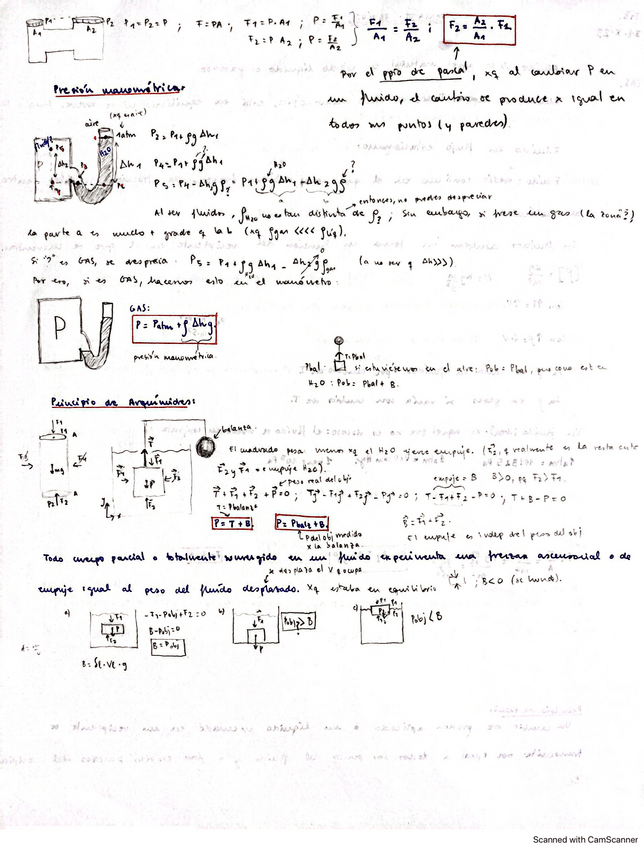 P1 P2 P1=P2=P ; F=PA ; F1=P·A1 ; P=F1/A1 F1/A1 = F2/A2 ; F2 = A2/A1 · F1
A1 A2 F2=P A2 ; P=F2/A2
Por el ppio de pascal, xq al cambiar P en
un fluido, el cambio se produce x igual en
todos sus puntos (y paredes).
Presión manométrica:
aire
1atm P2 = P1 + ρg Δh1
Δh2 Δh1 P4 = P1 + ρg Δh1
H2O
P5 = P4 - Δh2 g ρ? = P1 + ρg Δh1 + Δh2 g ρ ?
a b
entonces, no puedes despreciar
Al ser fluidos, ρH2O no es tan distinta de ρ? ; Sin embargo, si fuese un gas (la zona "?")
la parte a es mucho + grade q la b (xq ρgas <<<< ρliq).
Si "?" es GAS, se desprecia. P5 = P1 + ρg Δh1 - Δh2 g ρgas (a no ser q Δh>>>)
Por eso, si es GAS, hacemos esto en el manómetro:
GAS:
P P = Patm + ρ Δh g.
presión manométrica.
T=Pbal
Pbal si estuviésemos en el aire: Pob = Pbal, pero como está en
H2O : Pob = Pbal + B.
Principio de Arquímides:
balanza
El cuadrado pesa menos xq el H2O ejerce empuje.
Peso real del obj
T + F1 + F2 + P = 0 ; T - F1 + F2 - P = 0 ; T + B - P = 0
empuje = B B>0, pq F2>F1.
T = Pbalanz
P = T + B. P = Pbalz + B.
P del obj medido
x la balanza.
El empuje es indep del peso del obj
Todo cuerpo parcial o totalmente sumergido en un fluido experimenta una fuerza ascensorial o de
x desplaza el V q ocupa
empuje igual al peso del fluido desplazado. xq estaba en equilibrio ; B<0 (se hunde).
a) -F1 - Pobj + F2 = 0 b) Pobj > B c) Pobj < B
B - Pobj = 0
B = Pobj
Scanned with CamScanner